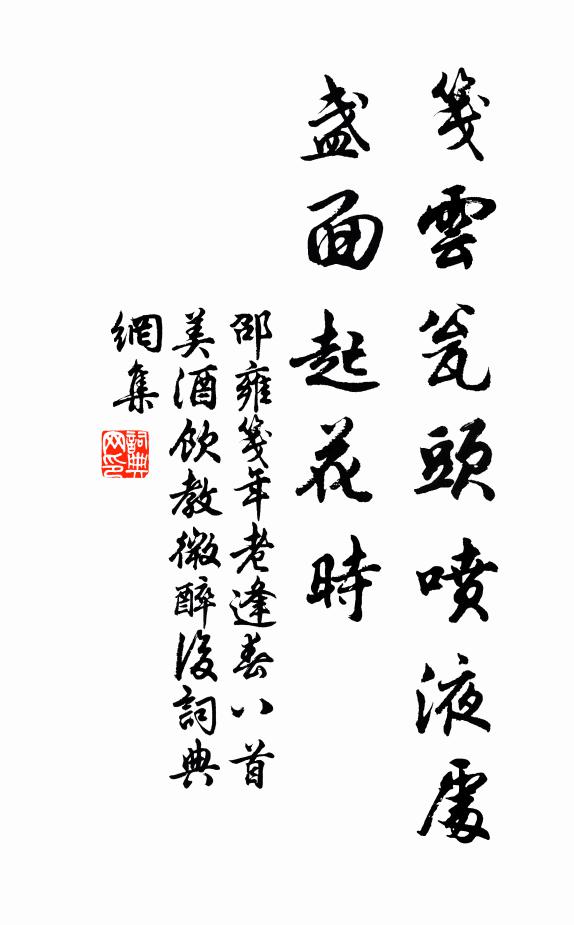 箋雲瓮頭噴液處
盞面起花時
邵雍箋年老逢春八首
美酒飲教微醉後詞典
網集
詞典網印